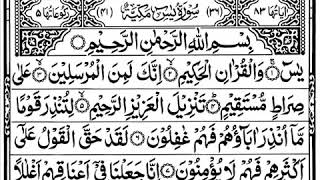 اٰيَاتُهَا ٨٣ (٣٦) سُوْرَةُ يٰسٓ مَكِّيَّةٌ (٤١) رُكُوْعَاتُهَا ٥
بِسْمِ اللّٰهِ الرَّحْمٰنِ الرَّحِيْمِ
يٰسٓ ۝١ وَالْقُرْاٰنِ الْحَكِيْمِ ۝٢ اِنَّكَ لَمِنَ الْمُرْسَلِيْنَ ۝٣ عَلٰى
صِرَاطٍ مُّسْتَقِيْمٍ ۝٤ تَنْزِيْلَ الْعَزِيْزِ الرَّحِيْمِ ۝٥ لِتُنْذِرَ قَوْمًا
مَّآ اُنْذِرَ اٰبَآؤُهُمْ فَهُمْ غٰفِلُوْنَ ۝٦ لَقَدْ حَقَّ الْقَوْلُ عَلٰٓى
اَكْثَرِهِمْ فَهُمْ لَا يُؤْمِنُوْنَ ۝٧ اِنَّا جَعَلْنَا فِيْٓ اَعْنَاقِهِمْ اَغْلٰلًا